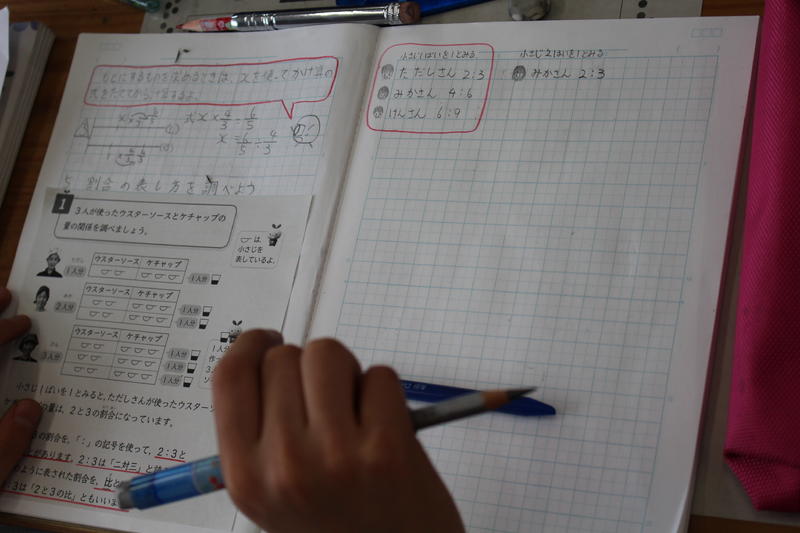 もとにするものを求めるときは、xを使ってかけ算の
式をたててから、計算するよ。
式 x × 4/3 = 6/5
x = 6/5 ÷ 4/3
5 割合の表し方を調べよう
1
3人が使ったウスターソースとケチャップの
量の関係を調べましょう。
は、
小さじを
表しているよ。
ただし
1人分
ウスターソース ケチャップ
1人分
みか
2人分
ウスターソース ケチャップ
1人分
1人分
けん
3人分
ウスターソース ケチャップ
1人分
1人分
1人分
小さじ1ぱいを1とみると、ただしさんが使ったウスターソ
の量は、2と3の割合になっています。
の割合を、「:」の記号を使って、2:3と
とがあります。2:3は「二対三」と
のように表された割合を、比と
3は「2と3の比」ともいいま
小さじ1ぱいを1とみる
ただしさん 2:3
みかさん 4:6
けんさん 6:9
小さじ2はいを1とみる
みかさん 2:3